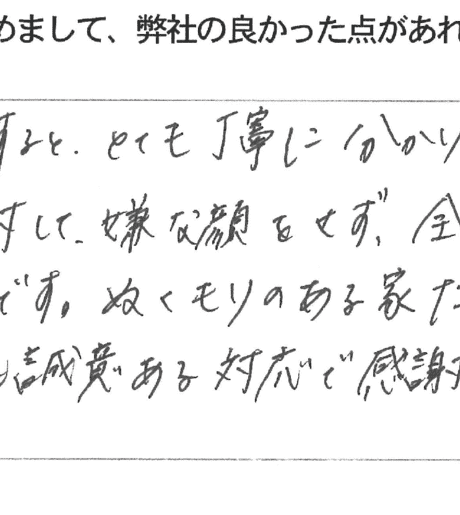 めまして、弊社の良かった点があれ
すると、とても丁寧に分かり
対して、嫌な顔をせず、全
です。ぬくモリのある家だ
誠意ある対応で感謝